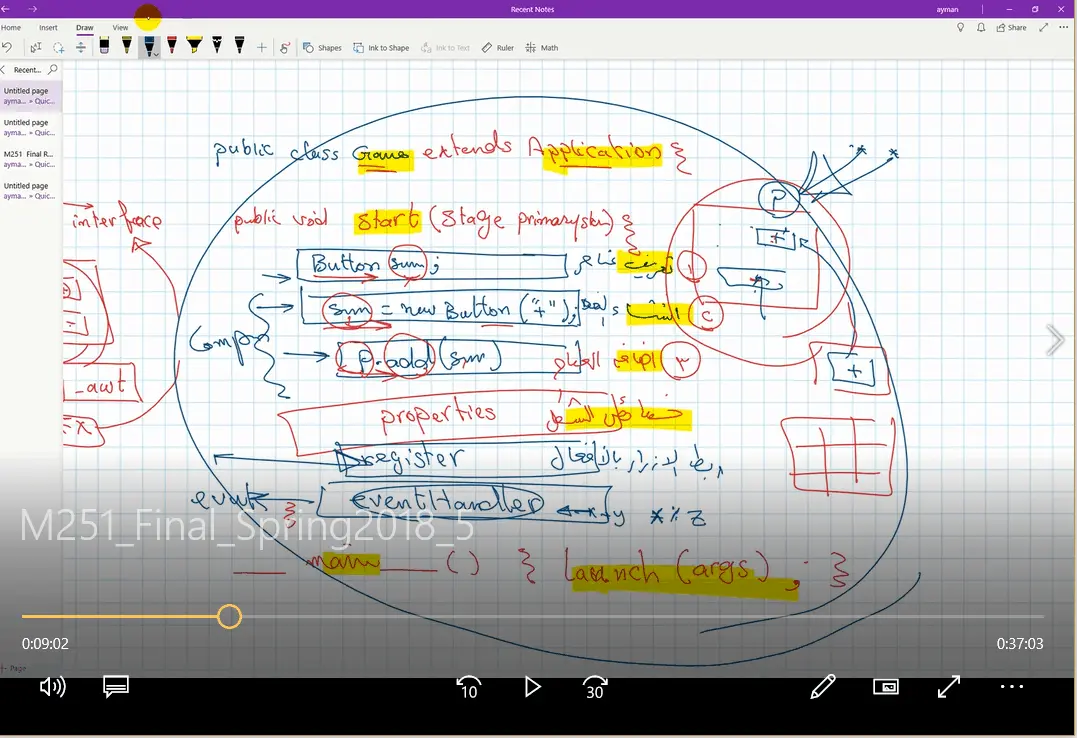 Recent Notes
ayman
Home Insert Draw View
Share
Shapes Ink to Shape Ink to Text Ruler Math
Recent...
Untitled page
ayma... » Quic...
Untitled page
ayma... » Quic...
M251 Final R...
ayma... » Quic...
Untitled page
ayma... » Quic...
public class Game extends Application {
interface
public void start (Stage primarystage) {
Button sum;
تعريف
١
sum = new Button ("+");
٢
P.add (sum)
اضافة
٣
P
+
+
_awt
FX
properties
register
ربط الازرار بالافعال
event
eventHandler
x+y x%z
}
M251_Final_Spring2018_5
main () { launch (args) ; }
0:09:02
0:37:03
+ Page
10
30